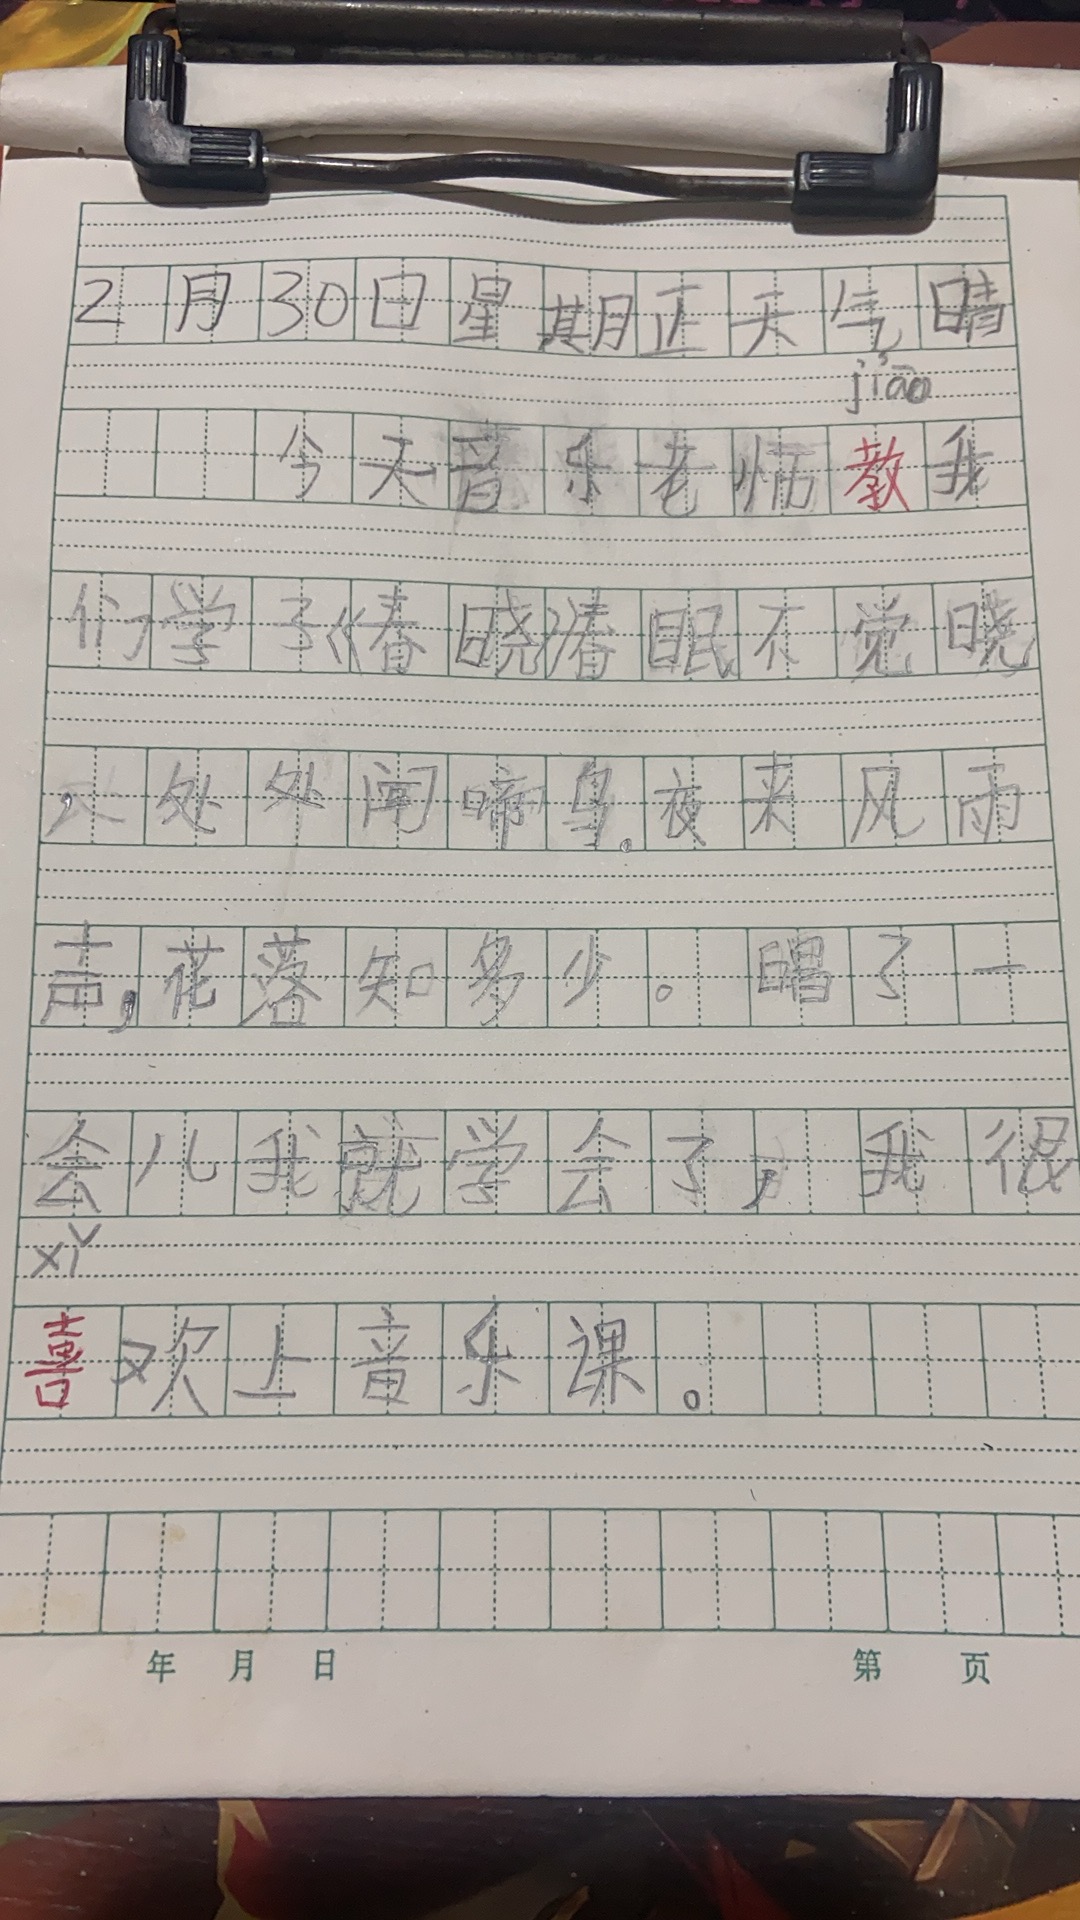 2月30日星期正天气晴
jiāo
今天音乐老师教我
们学了《春晓》春眠不觉晓
，处处闻啼鸟。夜来风雨
声，花落知多少。唱了一
会儿我就学会了，我很
xǐ
喜欢上音乐课。
年 月 日 第 页